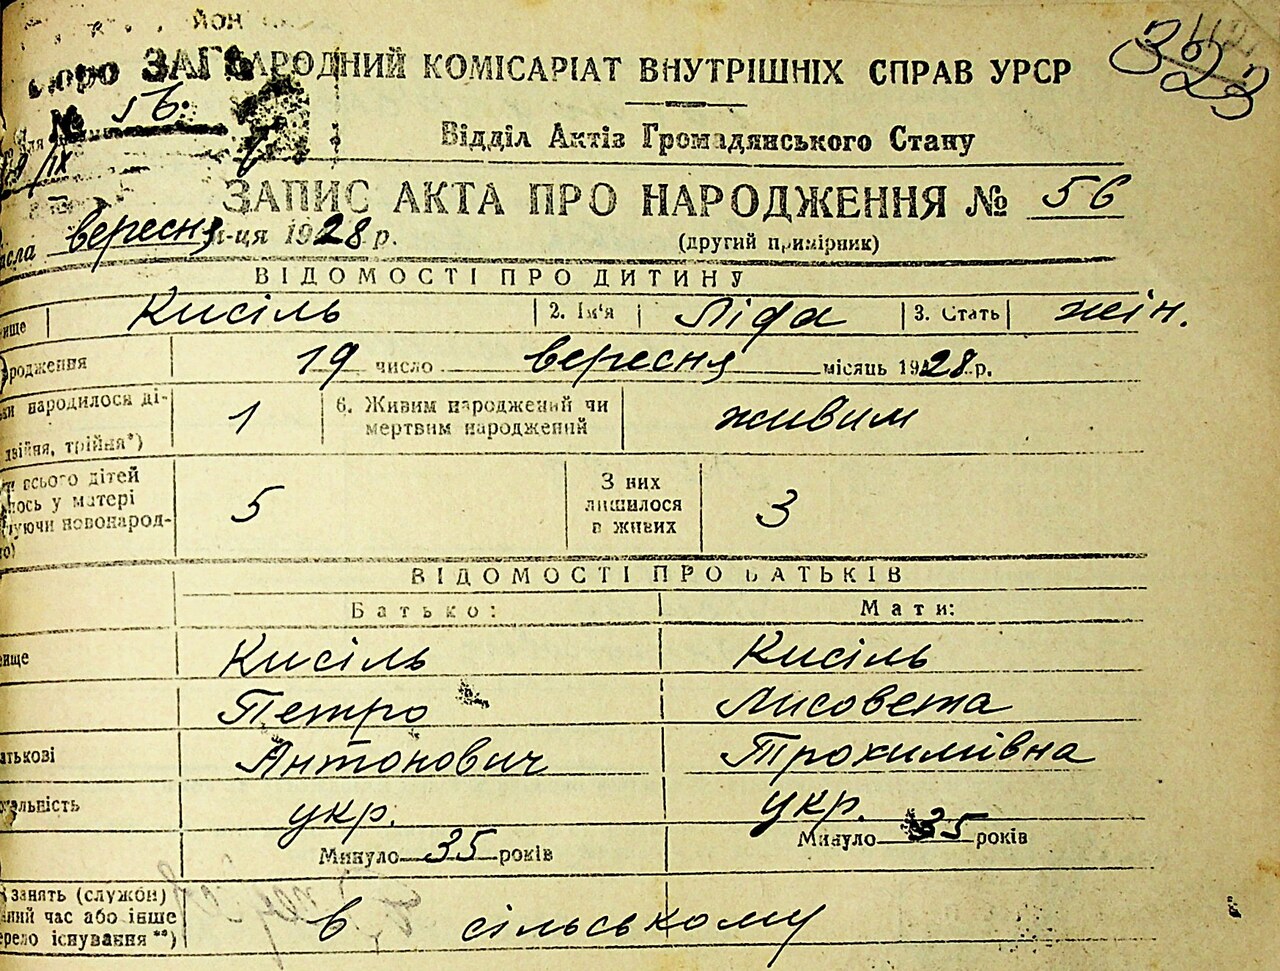 йон
бюро ЗАГС НАРОДНИЙ КОМІСАРІАТ ВНУТРІШНІХ СПРАВ УРСР
323
№ 56.
Відділ Актів Громадянського Стану
ЗАПИС АКТА ПРО НАРОДЖЕННЯ № 56
числа вересня м-ця 1928 р. (другий примірник)
ВІДОМОСТІ ПРО ДИТИНУ
вище Кисіль 2. Ім'я Ліда 3. Стать жін.
родження 19 число вересня місяць 1928 р.
ки народилося ді- 1 6. Живим народжений чи живим
двійня, трійня*) мертвим народжений
всього дітей 5 З них 3
лось у матері лишилося
уючи новонарод- в живих
го)
ВІДОМОСТІ ПРО БАТЬКІВ
Батько: Мати:
вище Кисіль Кисіль
Петро Лисовета
атькові Антонович Трохимівна
альність укр. укр.
Минуло 35 років Минуло 35 років
занять (служби)
ний час або інше в сільському
ерело існування **)